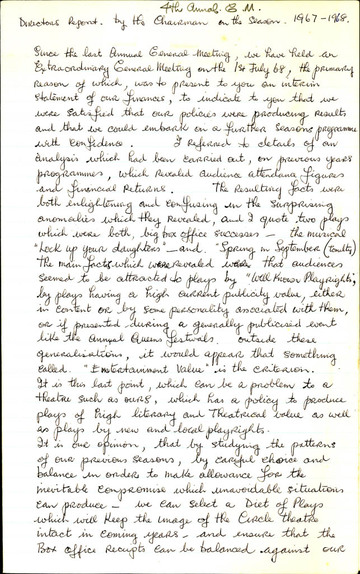 4th Annal. G M.
Directors Report. by the Chairman on the Season. 1967-1968.
Since the last Annual General Meeting, we have held an
Extraordinary General Meeting on the 1st July 68, the primary
reason of which, was to present to you an interim
statement of our finances, to indicate to you that we
were satisfied that our policies were producing results
and that we could embark on a further seasons programme
with confidence. I referred to details of an
analysis which had been carried out, on previous years
programmes, which revealed audience attendance figures
and financial returns. The resulting facts were
both enlightening and confusing in the surprising
anomalies which they revealed, and I quote two plays
which were both, big box office successes — the musical
"Lock up your daughters" — and. "Spring in September (Faulty)
the main facts which were revealed were that audiences
seemed to be attracted to plays by "Well Known Playrights",
by plays having a high current publicity value, either
in content or by some personality associated with them,
or if presented during a generally publicised event
like the Annual Queens festivals. outside these
generalizations, it would appear that something
called. "Entertainment Value" is the criterion.
It is this last point, which can be a problem to a
theatre such as ours, which has a policy to produce
plays of high literary and Theatrical value as well
as plays by new and local playrights.
It is our opinion, that by studying the patterns
of our previous seasons, by careful choice and
balance in orders to make allowance for the
inevitable compromise which unavoidable situations
can produce — we can select a Diet of Plays
which will keep the image of the Circle theatre
intact in coming years — and ensure that the
Box office Receipts can be balanced against our